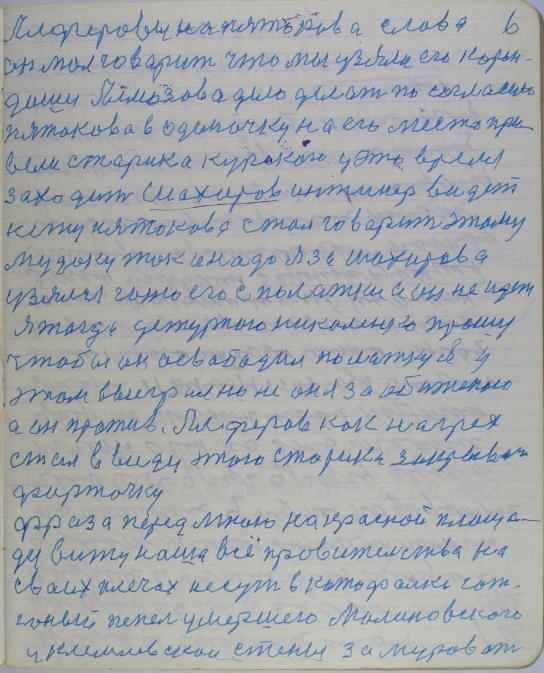 Алферовцу на пяткова слова 6
он мол говарит что мы узяли его каран-
даши Алмазова дило делат по согласию
пяткова в одиночку на его место при
вели старика курского у это время
заходит Шахиров интинер видет
нету пяткова стал говарит этому
мудаку так и надо Я за шахирова
узялся гоню его с полатки а он не идет
я тогда детурного николенко прошу
чтобы он освободил полатку Я у
этом выиграл но не он я за обиженого
а он против. Алферов как на грех
стал в виду этого старика закрыват
фарточку
фраза перед мною на красной площа-
ди вижу наша всё правителства на
своих плечах несут в катофалке сат.
гоный пепел умершего Малиновского
у кремлевской стены замуроват